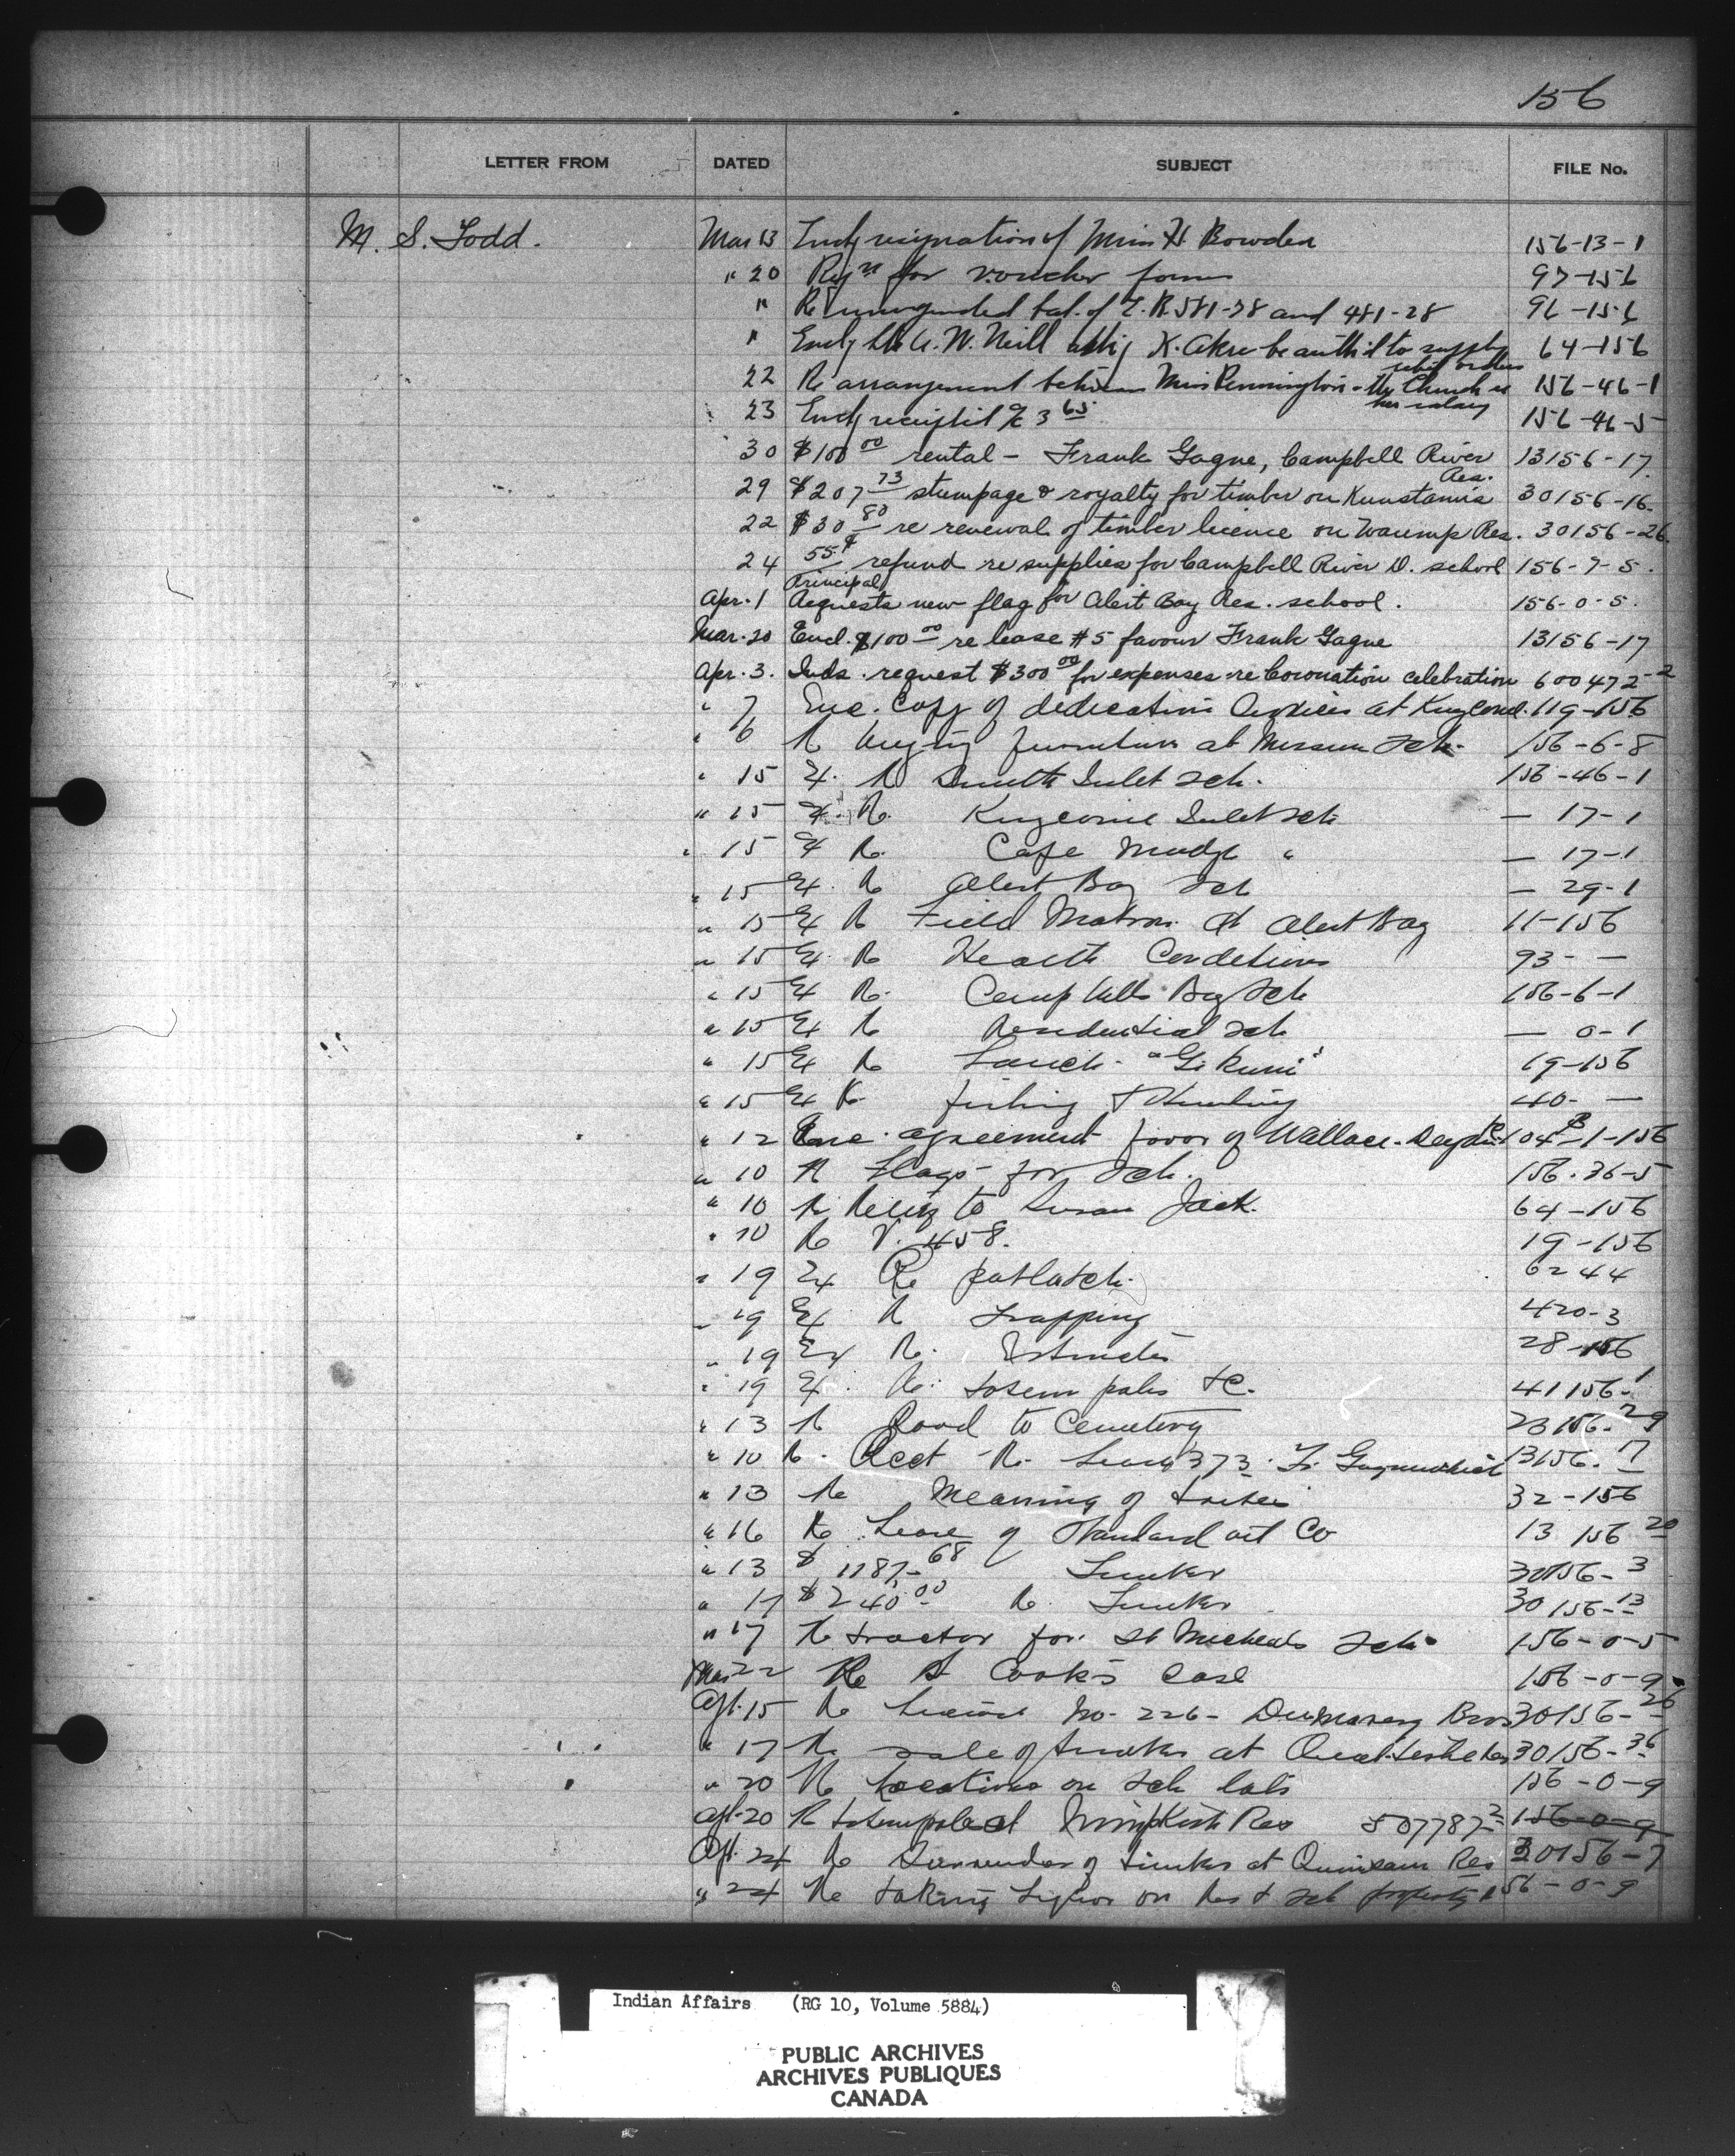 156
LETTER FROM DATED SUBJECT FILE No.
M. S. Todd. Mar 13 Encl resignation of Miss H. Bowden 156-13-1
" 20 Reqn for voucher forms 97-156
" Re unexpended bal. of 581-28 and 481-28 96-156
" Encl A. W. Neill K. Akre be auth'd to supply 64-156
relief orders
22 Re arrangement between Miss Pennington - Church re 156-46-1
her salary
23 Encl receipted 3 65 156-46-5
30 $100 00 rental - Frank Gagne, Campbell River 13156-17
Res.
29 $207 73 stumpage & royalty for timber on Kunstamis 30156-16
22 $30 80 re renewal of timber licence on Waump Res. 30156-26
24 55¢ refund re supplies for Campbell River D. school 156-7-5.
Principal
Apr. 1 Requests new flag for Alert Bay Res. school. 156-0-5.
Mar. 20 Encl. $100 00 re lease #5 favour Frank Gagne 13156-17
Apr. 3. Inds. request $300 00 for expenses re Coronation celebration 600472-2
" 7 Enc. Copy of dedication Services at Kingcome. 119-156
" 6 R buying furniture at Mission Sch. 156-6-8
" 15 Ex. R Smith Inlet Sch. 156-46-1
" 15 Ex. R. Kingcome Inlet Sch — 17-1
" 15 Ex R. Cape Mudge " — 17-1
" 15 Ex. R Alert Bay Sch — 29-1
" 15 Ex R Field Matron at Alert Bay 11-156
" 15 Ex. R Health Conditions 93- —
" 15 Ex R. Campbells Bay Sch 156-6-1
" 15 Ex R Residential Sch — 0-1
" 15 Ex R Launch "Gikumi" 19-156
" 15 Ex R. fishing & Hunting 40- —
" 12 Enc. agreement favor of Wallace 104-1-156
" 10 R Flags for Sch. 156-36-5
" 10 R Relief to Susan Jack. 64-156
" 10 R V. 458. 19-156
" 19 Ex Re potlatch. 6244
" 19 Ex. R Trapping 420-3
" 19 Ex R. Estimates 28-156
" 19 Ex. R. totem poles &c. 41156-1
" 13 R Road to Cemetery 23156-29
" 10 R. Acct R. Lease 373 13156-17
" 13 Re Meaning of 32-156
" 16 Re Lease of Standard oil Co 13 156 20
" 13 $1187.68 Timber 30156-3
" 17 $240.00 R. Timber 30156-13
" 17 R tractor for St Michaels Sch. 156-0-5
Mar 22 Re Cook's case 156-0-9
Apl. 15 R License No. 226- Bros 30156-26
" 17 R sale of timber at 30156-36
" 20 R Locations on Sch lots 156-0-9
Apl. 20 R totempole at Nimpkish Res 507787-2 156-0-9
Apl. 24 Re Surrender of timber at Quinsam Res 30156-7
" 24 Re taking liquor on Res & Sch property 156-0-9
Indian Affairs (RG 10, Volume 5884)
PUBLIC ARCHIVES
ARCHIVES PUBLIQUES
CANADA